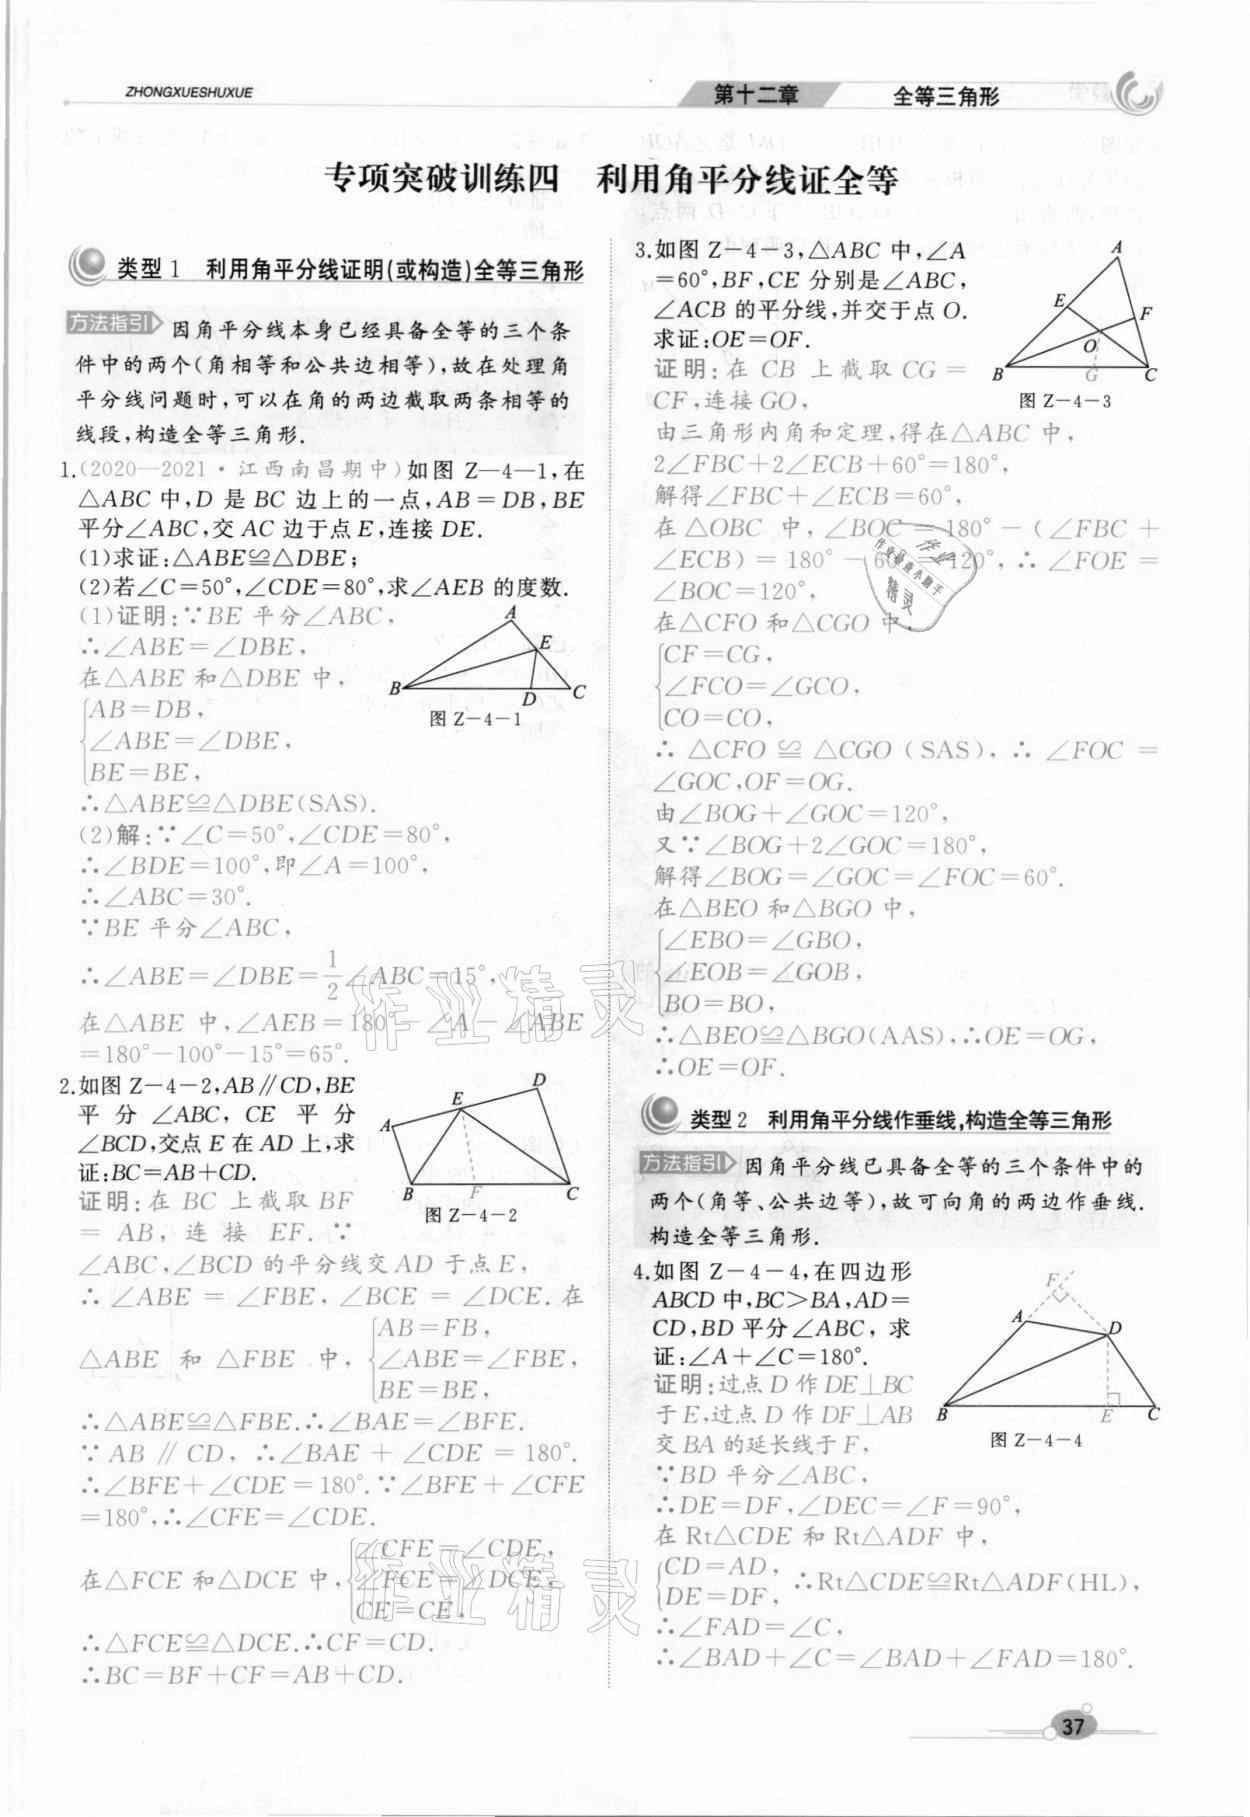 ZHONGXUESHUXUE
第十二章 全等三角形
专项突破训练四 利用角平分线证全等
类型1 利用角平分线证明(或构造)全等三角形
方法指引 因角平分线本身已经具备全等的三个条
件中的两个(角相等和公共边相等),故在处理角
平分线问题时,可以在角的两边截取两条相等的
线段,构造全等三角形.
1.(2020—2021·江西南昌期中)如图 Z—4—1,在
△ABC 中,D 是 BC 边上的一点,AB=DB,BE
平分∠ABC,交 AC 边于点 E,连接 DE.
(1)求证:△ABE≌△DBE;
(2)若∠C=50°,∠CDE=80°,求∠AEB 的度数.
(1)证明:∵BE 平分∠ABC,
∴∠ABE=∠DBE,
在△ABE 和△DBE 中,
AB=DB,
∠ABE=∠DBE,
BE=BE,
A
E
B
D
C
图 Z-4-1
∴△ABE≌△DBE(SAS).
(2)解:∵∠C=50°,∠CDE=80°,
∴∠BDE=100°,即∠A=100°,
∴∠ABC=30°.
∵BE 平分∠ABC,
∴∠ABE=∠DBE=1/2∠ABC=15°,
在△ABE 中,∠AEB=180°-∠A-∠ABE
=180°-100°-15°=65°.
2.如图 Z-4-2,AB∥CD,BE
平分∠ABC,CE 平分
∠BCD,交点 E 在 AD 上,求
证:BC=AB+CD.
D
E
A
B
F
C
图 Z-4-2
证明:在 BC 上截取 BF
=AB,连接 EF.∵
∠ABC,∠BCD 的平分线交 AD 于点 E,
∴∠ABE=∠FBE,∠BCE=∠DCE.在
△ABE 和△FBE 中,
AB=FB,
∠ABE=∠FBE,
BE=BE,
∴△ABE≌△FBE.∴∠BAE=∠BFE.
∵AB∥CD,∴∠BAE+∠CDE=180°.
∴∠BFE+∠CDE=180°.∵∠BFE+∠CFE
=180°,∴∠CFE=∠CDE.
在△FCE 和△DCE 中,
∠CFE=∠CDE,
∠FCE=∠DCE,
CE=CE,
∴△FCE≌△DCE.∴CF=CD.
∴BC=BF+CF=AB+CD.
3.如图 Z-4-3,△ABC 中,∠A
=60°,BF,CE 分别是∠ABC,
∠ACB 的平分线,并交于点 O.
求证:OE=OF.
A
E
F
O
B
G
C
图 Z-4-3
证明:在 CB 上截取 CG=
CF,连接 GO,
由三角形内角和定理,得在△ABC 中,
2∠FBC+2∠ECB+60°=180°,
解得∠FBC+∠ECB=60°,
在△OBC 中,∠BOC=180°-(∠FBC+
∠ECB)=180°-60°=120°,∴∠FOE=
∠BOC=120°,
在△CFO 和△CGO 中,
CF=CG,
∠FCO=∠GCO,
CO=CO,
∴△CFO≌△CGO(SAS),∴∠FOC=
∠GOC,OF=OG.
由∠BOG+∠GOC=120°,
又∵∠BOG+2∠GOC=180°,
解得∠BOG=∠GOC=∠FOC=60°.
在△BEO 和△BGO 中,
∠EBO=∠GBO,
∠EOB=∠GOB,
BO=BO,
∴△BEO≌△BGO(AAS),∴OE=OG,
∴OE=OF.
类型2 利用角平分线作垂线,构造全等三角形
方法指引 因角平分线已具备全等的三个条件中的
两个(角等、公共边等),故可向角的两边作垂线.
构造全等三角形.
4.如图 Z-4-4,在四边形
ABCD 中,BC>BA,AD=
CD,BD 平分∠ABC,求
证:∠A+∠C=180°.
F
A
D
B
E
C
图 Z-4-4
证明:过点 D 作 DE⊥BC
于 E,过点 D 作 DF⊥AB
交 BA 的延长线于 F,
∵BD 平分∠ABC,
∴DE=DF,∠DEC=∠F=90°,
在 Rt△CDE 和 Rt△ADF 中,
CD=AD,
DE=DF,
∴Rt△CDE≌Rt△ADF(HL),
∴∠FAD=∠C,
∴∠BAD+∠C=∠BAD+∠FAD=180°.
作业精灵
作业精灵
作业
作业检查小助手
精灵
37